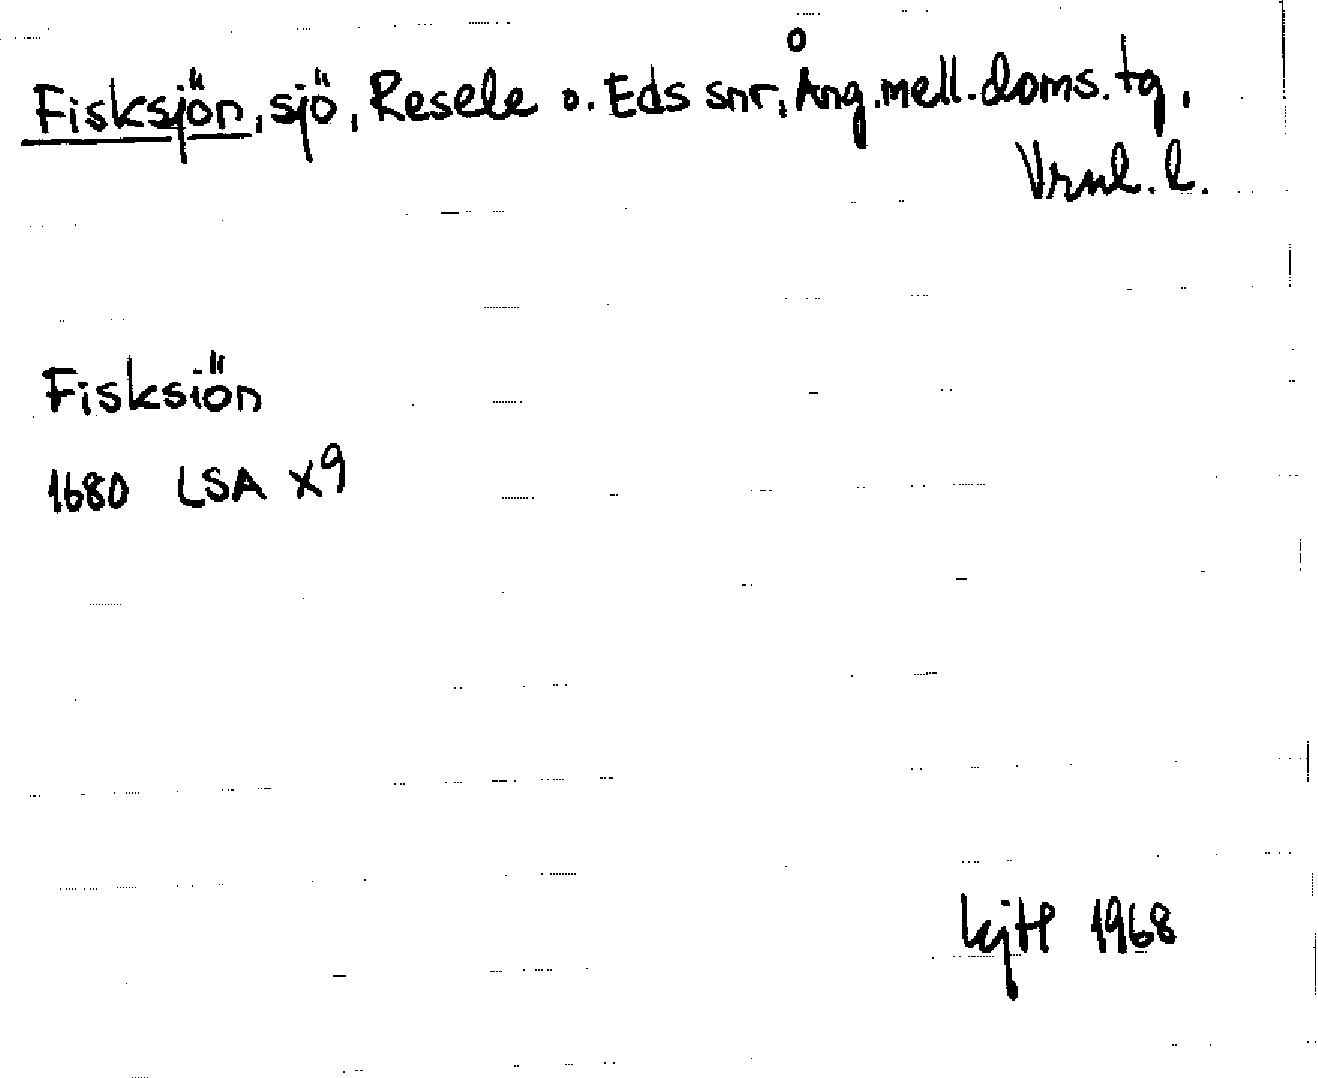 Fisksjön, sjö, Resele o. Eds snr, Ång. mell. doms. tg,
Vrnl. l.
Fisksiön
1680 LSA X9
1968